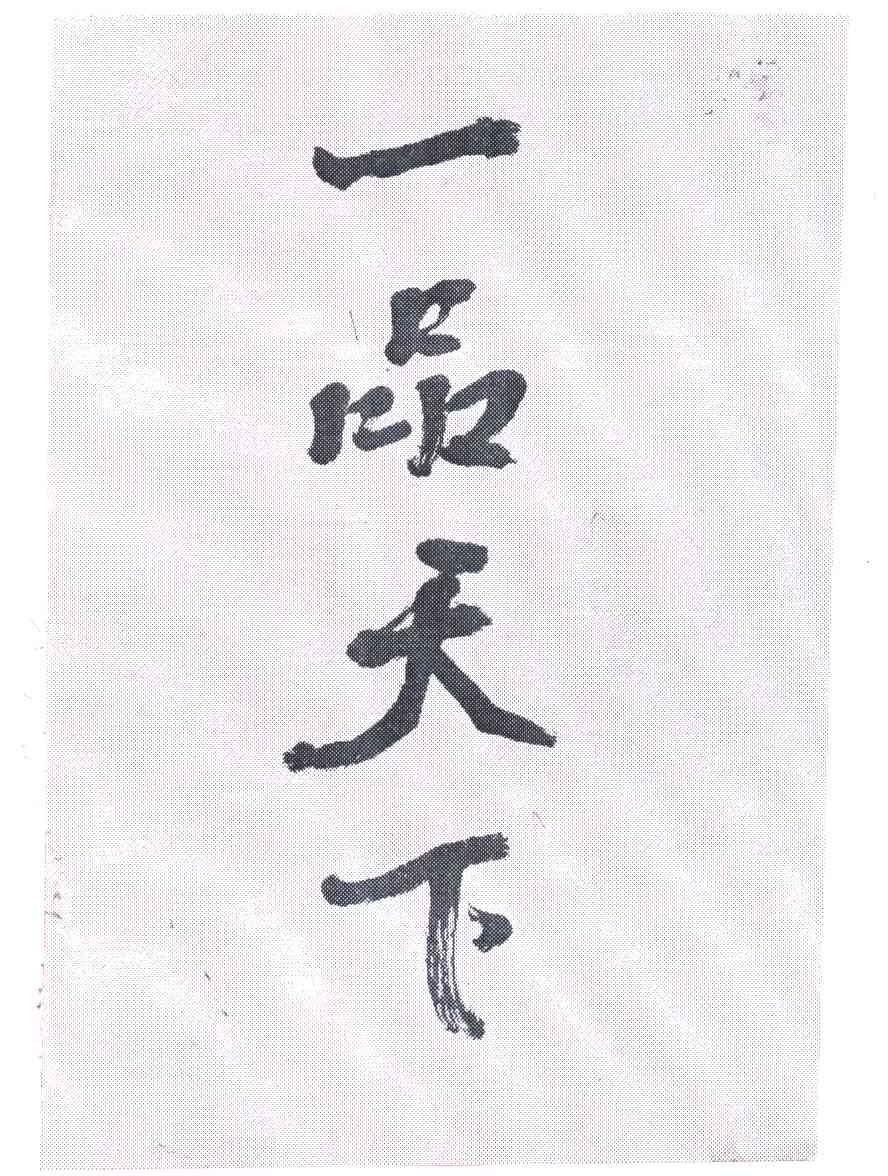 一品天下